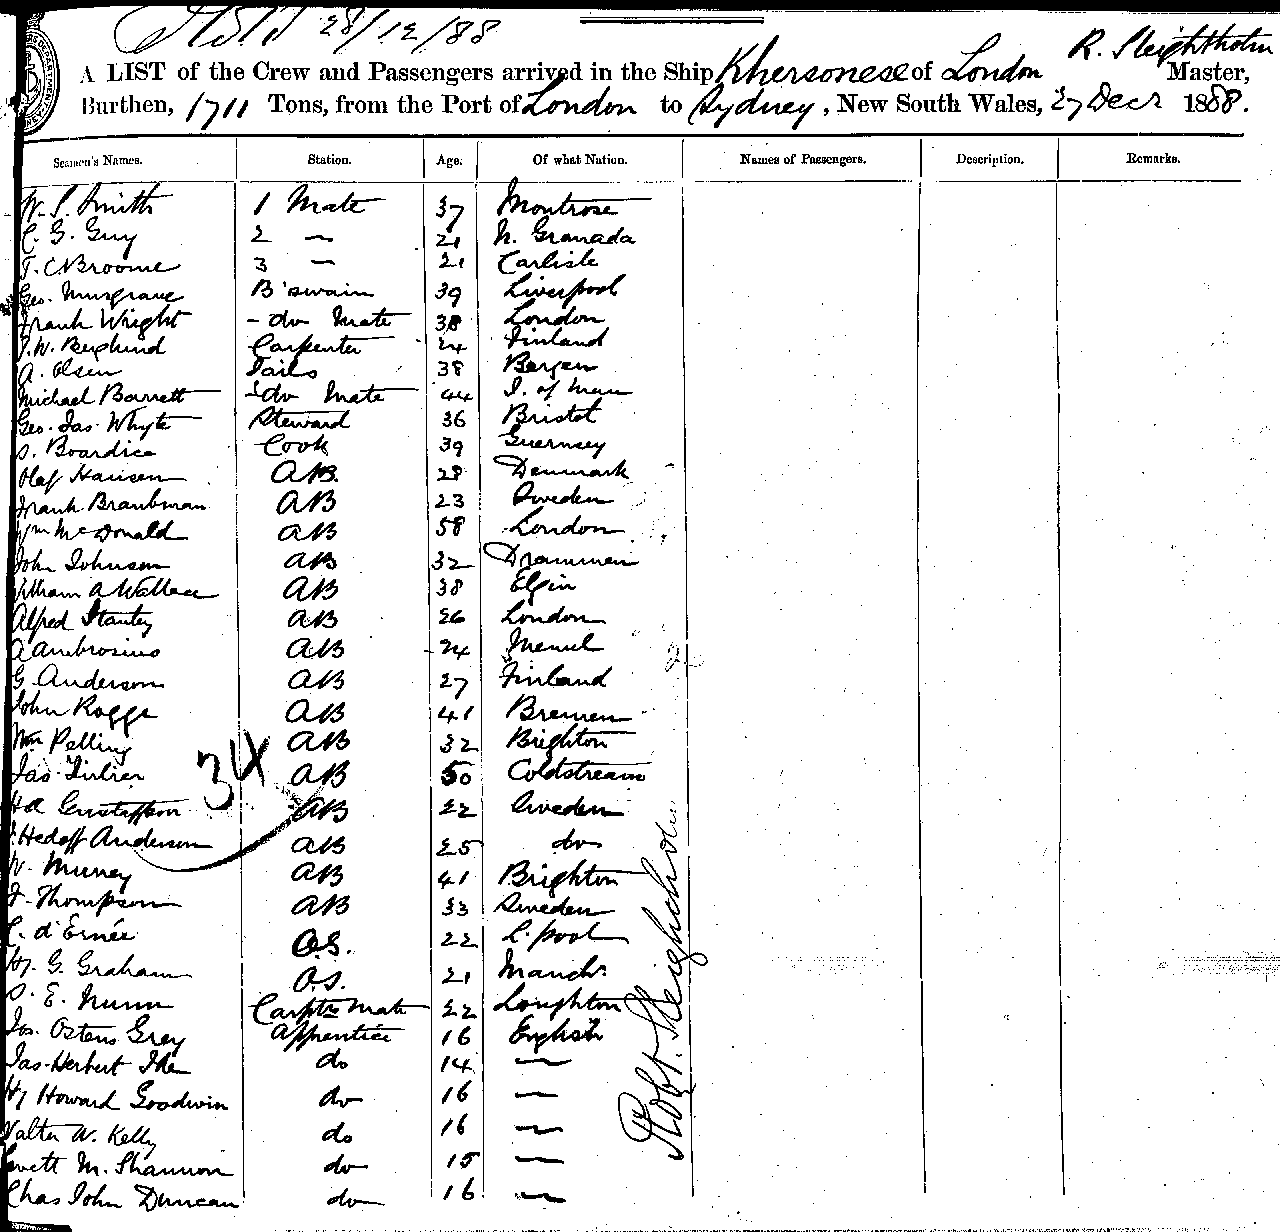 28/12/88
R. Sleightholm
A LIST of the Crew and Passengers arrived in the Ship Khersonese of London Master,
Burthen, 1711 Tons, from the Port of London to Sydney, New South Wales, 27 Decr 1888.
Seamen's Names. Station. Age. Of what Nation. Names of Passengers. Description. Remarks.
W. S. Smith 1 Mate 37 Montrose
C. G. Guy 2 — 21 N. Granada
T. C. Broome 3 — 21 Carlisle
Geo. Musgrave B'swain 39 Liverpool
Frank Wright - do Mate 38 London
J. W. Berglund Carpenter 24 Finland
A. Olsen Sails 38 Bergen
Michael Barrett - do Mate 44 I. of Man
Geo. Jas Whyte Steward 36 Bristol
S. Boardice Cook 39 Guernsey
Olaf Hansen AB. 28 Denmark
Frank Branbman AB 23 Sweden
Wm McDonald AB 58 London
John Johnson AB 32 Drammen
William A Wallace AB 38 Elgin
Alfred Stanley AB 26 London
A Ambrosius AB 24 Memel
G Anderson AB 27 Finland
John Rogge AB 41 Bremen
Wm Pelling AB 32 Brighton
34
Jas AB 50 Coldstream
Gustafson AB 22 Sweden
Anderson AB 25 do
W. AB 41 Brighton
F. Thompson AB 33 Sweden
C. d'Ernée O.S. 22 L.pool
Hy. G. Graham O.S. 21 Manchr
S. E. Nunn Carptrs Mate 22 Loughton
Jos. Ostens Grey Apprentice 16 English
Jas. Herbert Ide do 14 —
Hy Howard Goodwin do 16 —
Walter W. Kelly do 16 —
M. Shannon do 15 —
Chas John Duncan do 16 —
Robt. Sleightholm